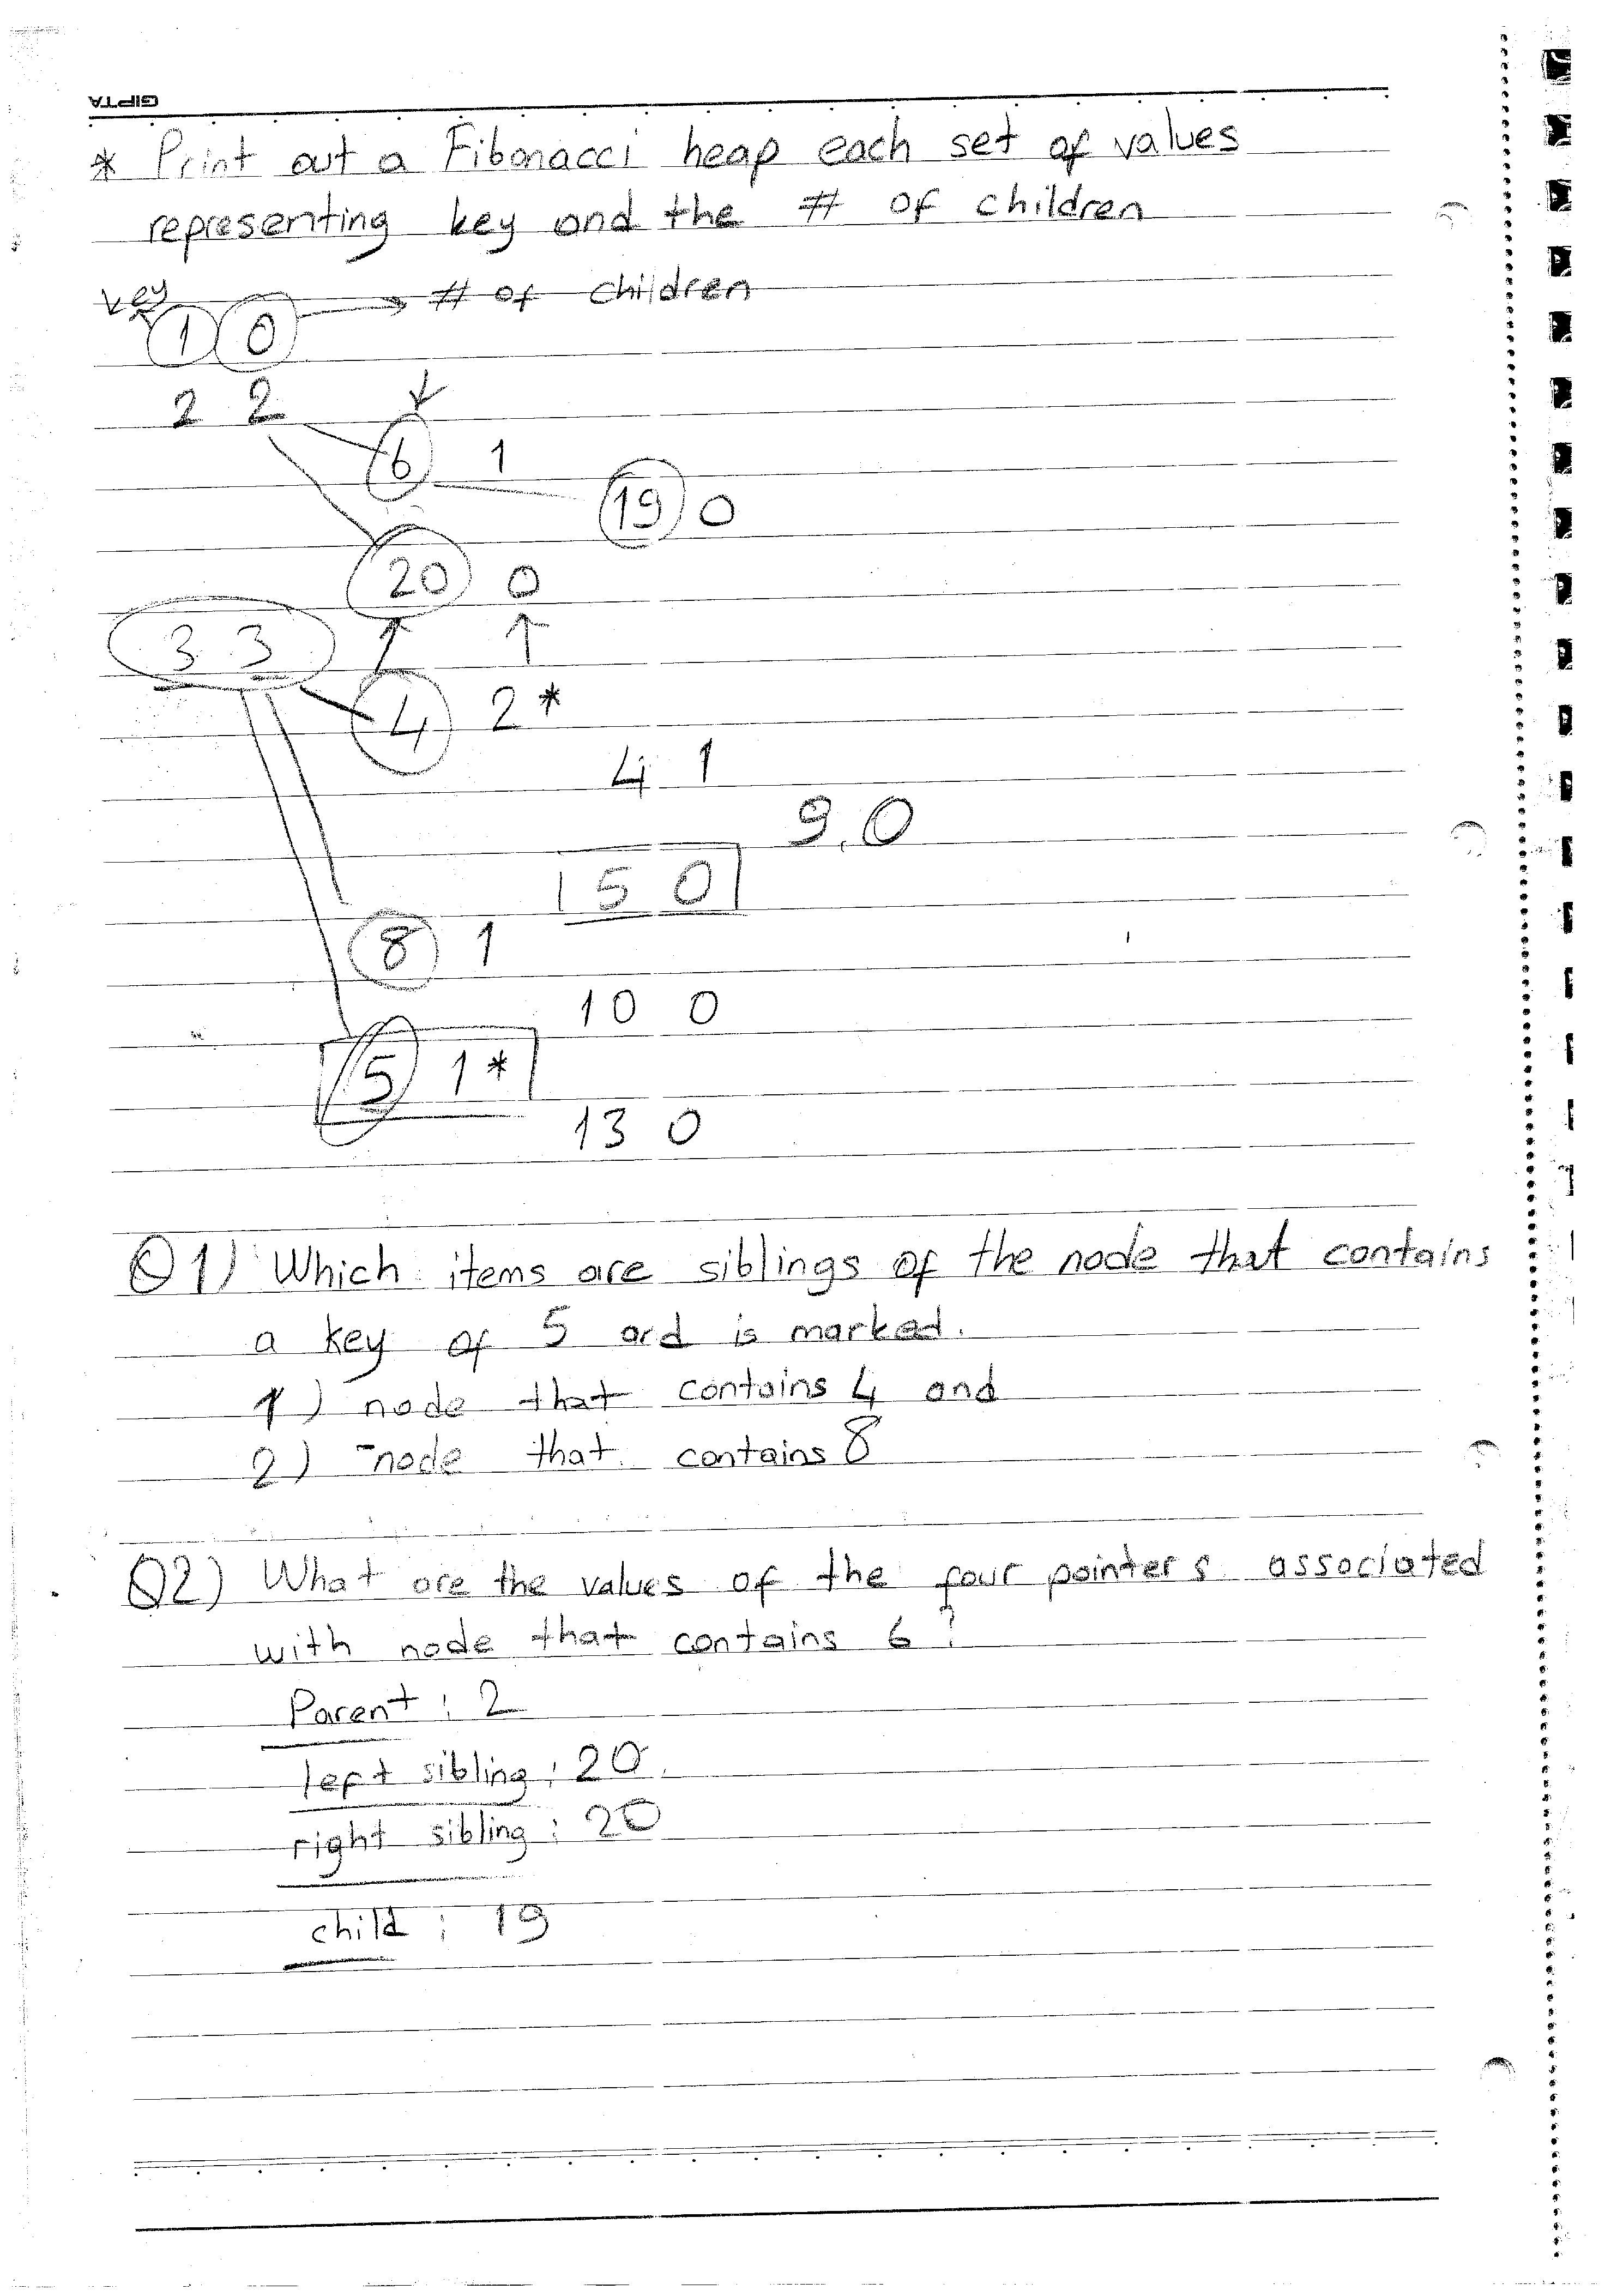 GIPTA
* Print out a Fibonacci heap each set of values
representing key and the # of children
key → # of children
1 0
2 2
6 1
19 0
20 0
3 3
4 2*
4 1
9,0
5 0
8 1
10 0
5 1*
13 0
Q1) Which items are siblings of the node that contains
a key of 5 and is marked.
1) node that contains 4 and
2) node that contains 8
Q2) What are the values of the four pointers associated
with node that contains 6?
Parent: 2
left sibling: 20
right sibling: 20
child: 19